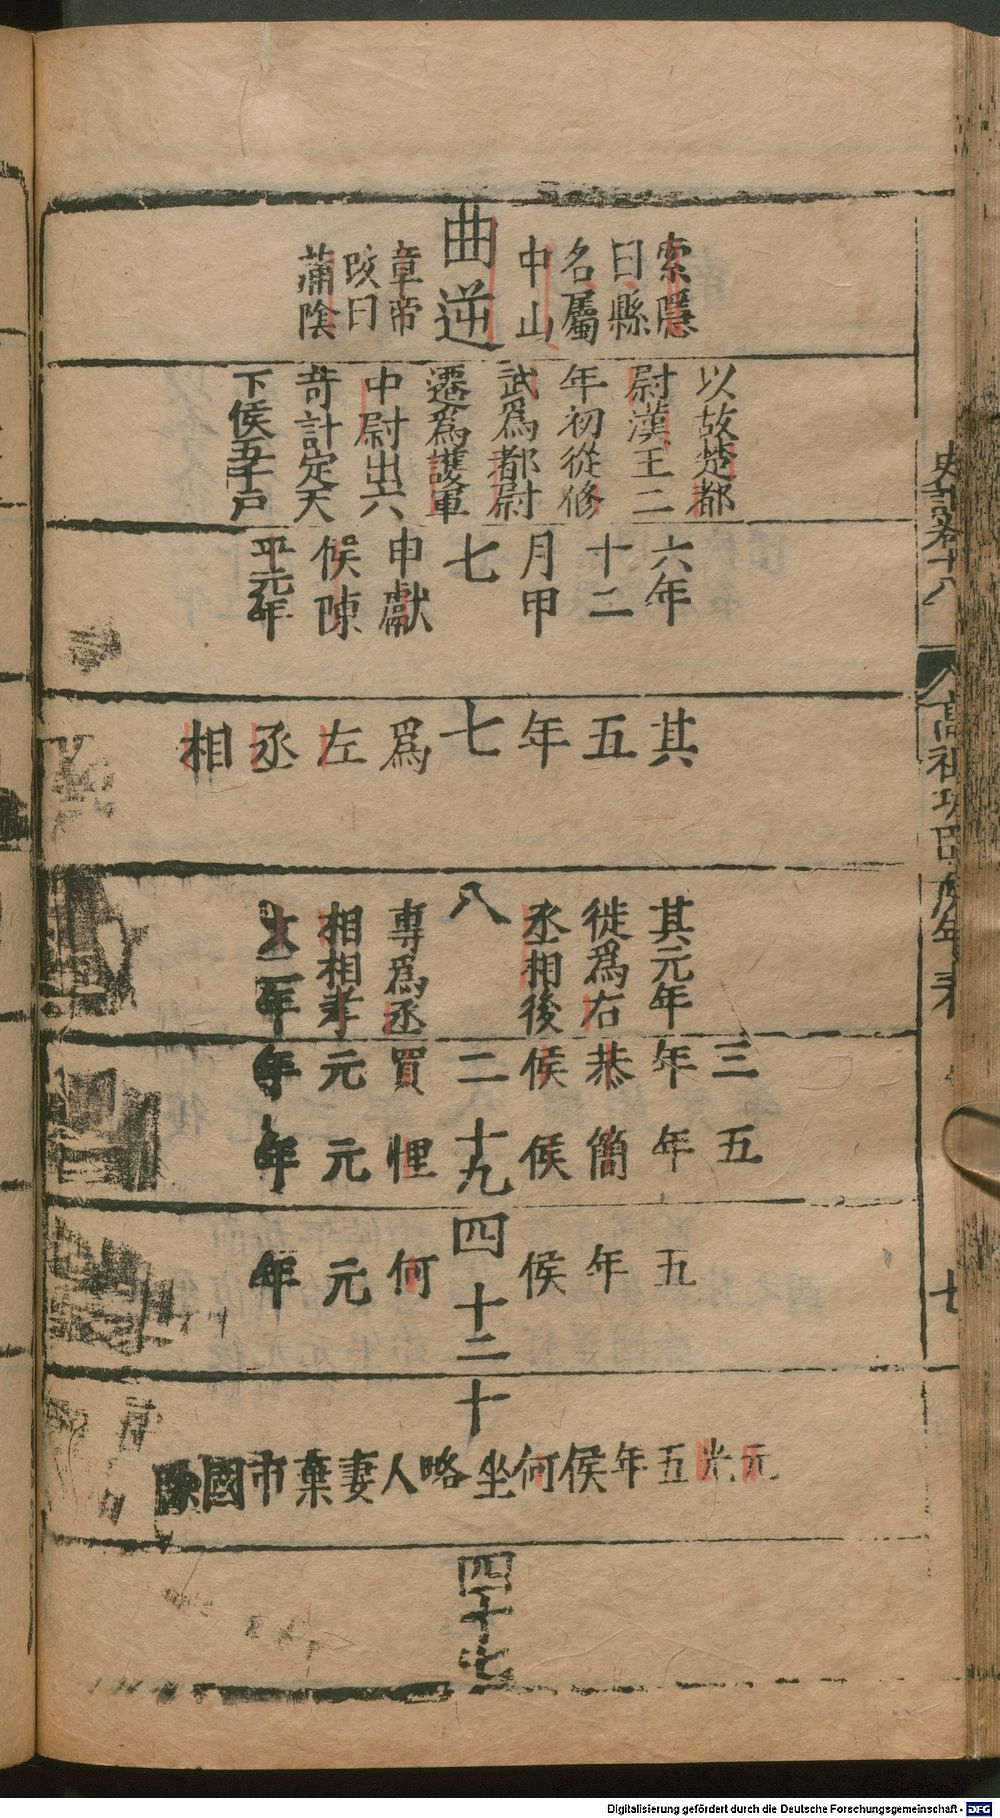 曲逆
索隱
曰縣
名屬
中山
章帝
改曰
蒲陰
以故楚都
尉漢王二
年初從修
武爲都尉
遷爲護軍
中尉出六
奇計定天
下侯五千户
六年
十二
月甲
七
申獻
侯陳
平元年
其
五
年
七
爲
左
丞
相
其元年
徙爲右
丞相後
八
專爲丞
相相孝
文二年
三
年
恭
侯
二
買
元
年
五
年
簡
侯
十九
悝
元
年
五
年
侯
四
何
元
年
十二
十
元光五年侯何坐略人妻棄市國除
四十七
史記卷十八
高祖功臣侯年表
七
Digitalisierung gefördert durch die Deutsche Forschungsgemeinschaft - DFG